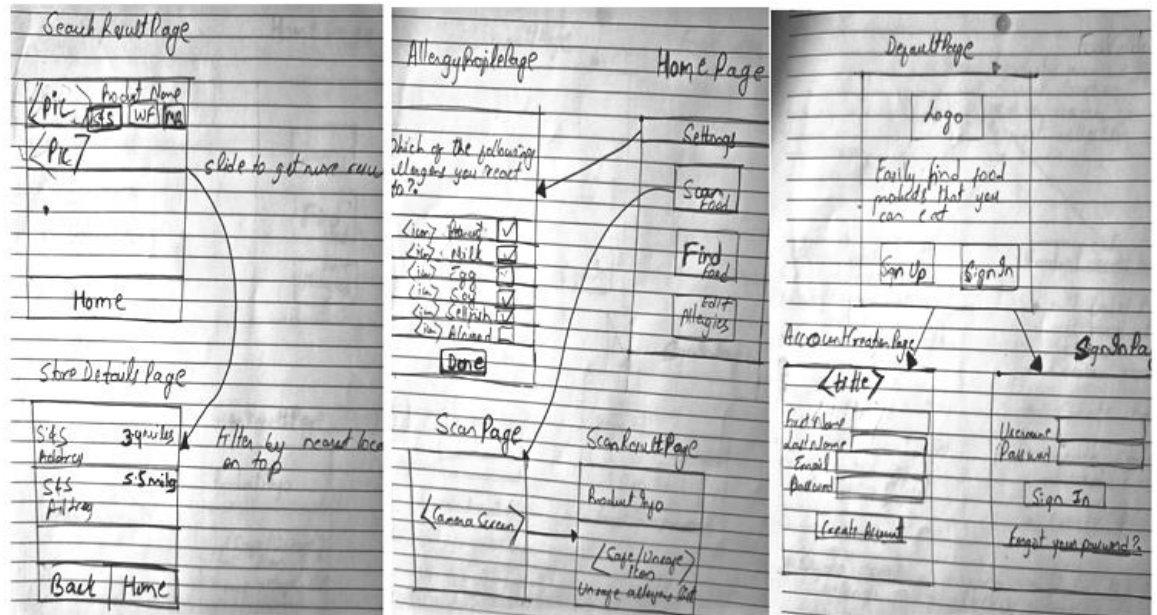 Search Result Page
<Pic>
Product Name
S&S WF MB
<Pic>
slide to get more
Home
Store Details Page
S&S 3.9 miles
Address
S&S 5.5 miles
Address
filter by nearest
on top
Back Home
Allergy Profile Page
Which of the following
allergens you react
to?
<icon> Peanut
<icon> Milk
<icon> Egg
<icon> Soy
<icon>
<icon> Almond
Done
Home Page
Settings
Scan
Food
Find
Food
Edit
Allergies
Scan Page
<Camera Screen>
Scan Result Page
Product Info
<Safe/Unsafe
Icon>
Unsafe allergens list
Default Page
Logo
Easily find food
products that you
can eat
Sign Up Sign In
Account Creation Page
<title>
First Name
Last Name
Email
Password
Create Account
Sign In Pa
Username
Password
Sign In
Forgot your password?